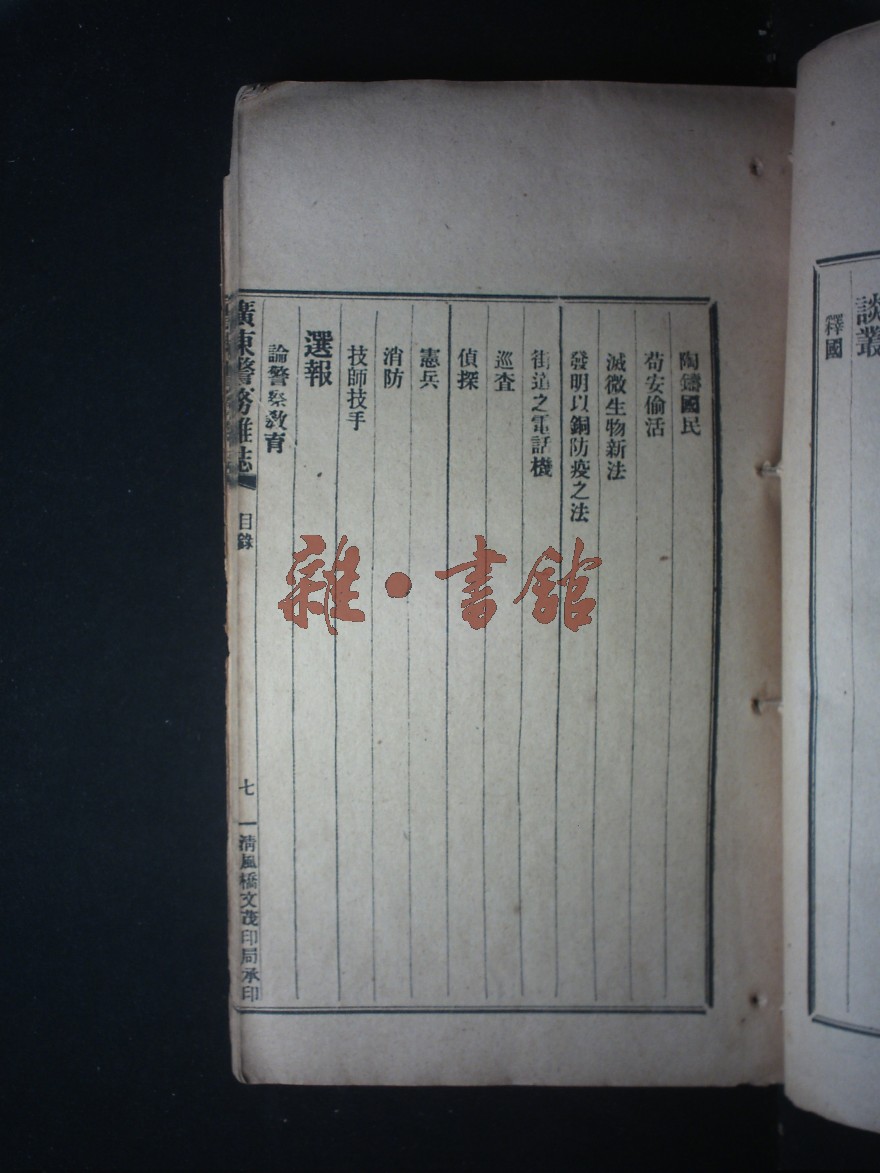 談叢
釋國
陶鑄國民
苟安偷活
滅微生物新法
發明以銅防疫之法
街道之電話機
巡查
偵探
憲兵
消防
技師技手
選報
論警察教育
廣東警務雜誌
目錄
七
清風橋文茂印局承印
雜·書館